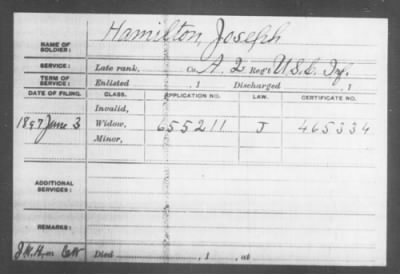 NAME OF SOLDIER: Hamilton, Joseph
SERVICE: Late rank, Co. A. 2 Reg't U.S.C. Inf.
TERM OF SERVICE: Enlisted , 1 Discharged , 1
DATE OF FILING. CLASS. APPLICATION NO. LAW. CERTIFICATE NO.
Invalid,
1897 June 3 Widow, 655211 J 465334
Minor,
ADDITIONAL SERVICES:
REMARKS:
Died , 1 , at